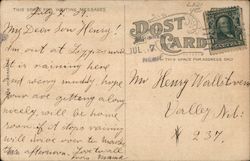 THIS SPACE FOR WRITING MESSAGES
July 7, 09.
My Dear Son Henry!
I'm out at Lizzies and
it is raining here
but very muddy hope
your are getting along
nicely, will be home
soon if it stops raining
will drive over to
this afternoon. Love
from mama
POST CARD
THIS SPACE FOR ADDRESS ONLY
JUL 7
NEBR.
Mr Henry
Valley Neb.
# 237.